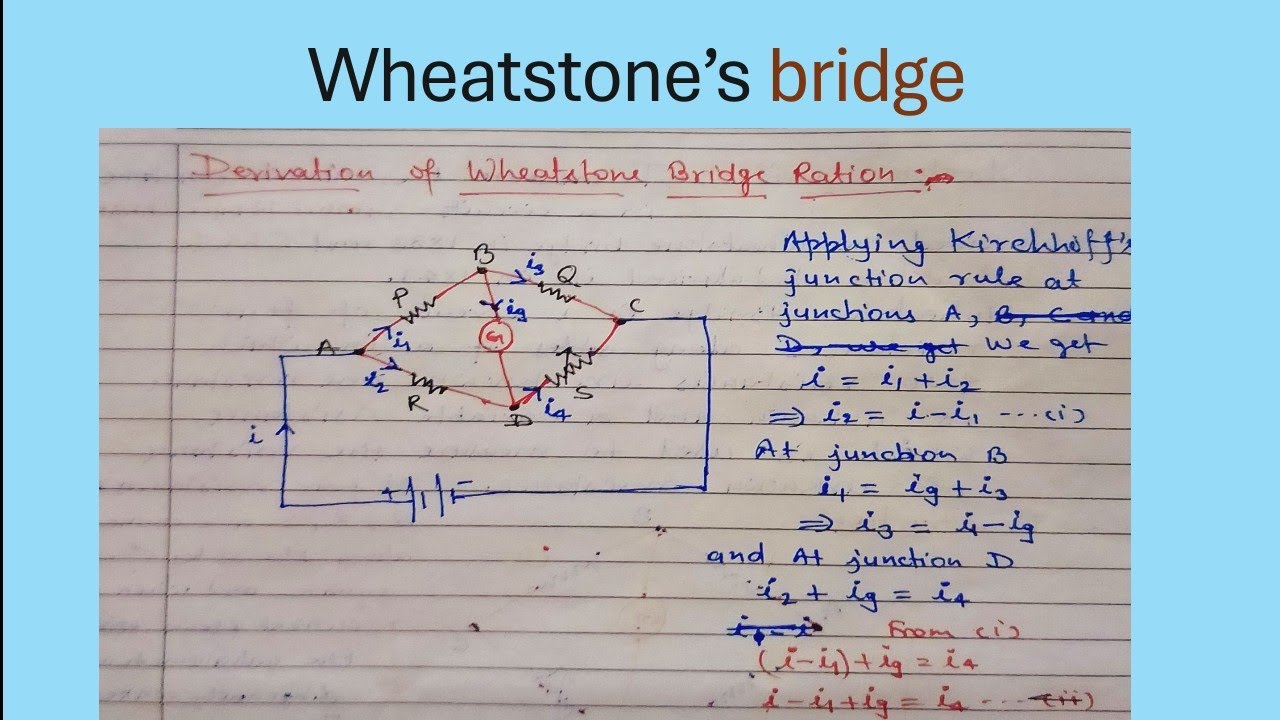 Wheatstone's bridge
Derivation of Wheatstone Bridge Ration :-
B
i₃
Q
P
ig
C
G
A
i₁
i₂
R
S
D
i₄
i
+
-
Applying Kirchhoff's
junction rule at
junctions A, B, C and
D, we get we get
i = i₁ + i₂
⇒ i₂ = i - i₁ ---(i)
At junction B
i₁ = ig + i₃
⇒ i₃ = i₁ - ig
and At junction D
i₂ + ig = i₄
From (i)
(i - i₁) + ig = i₄
i - i₁ + ig = i₄ --- (ii)